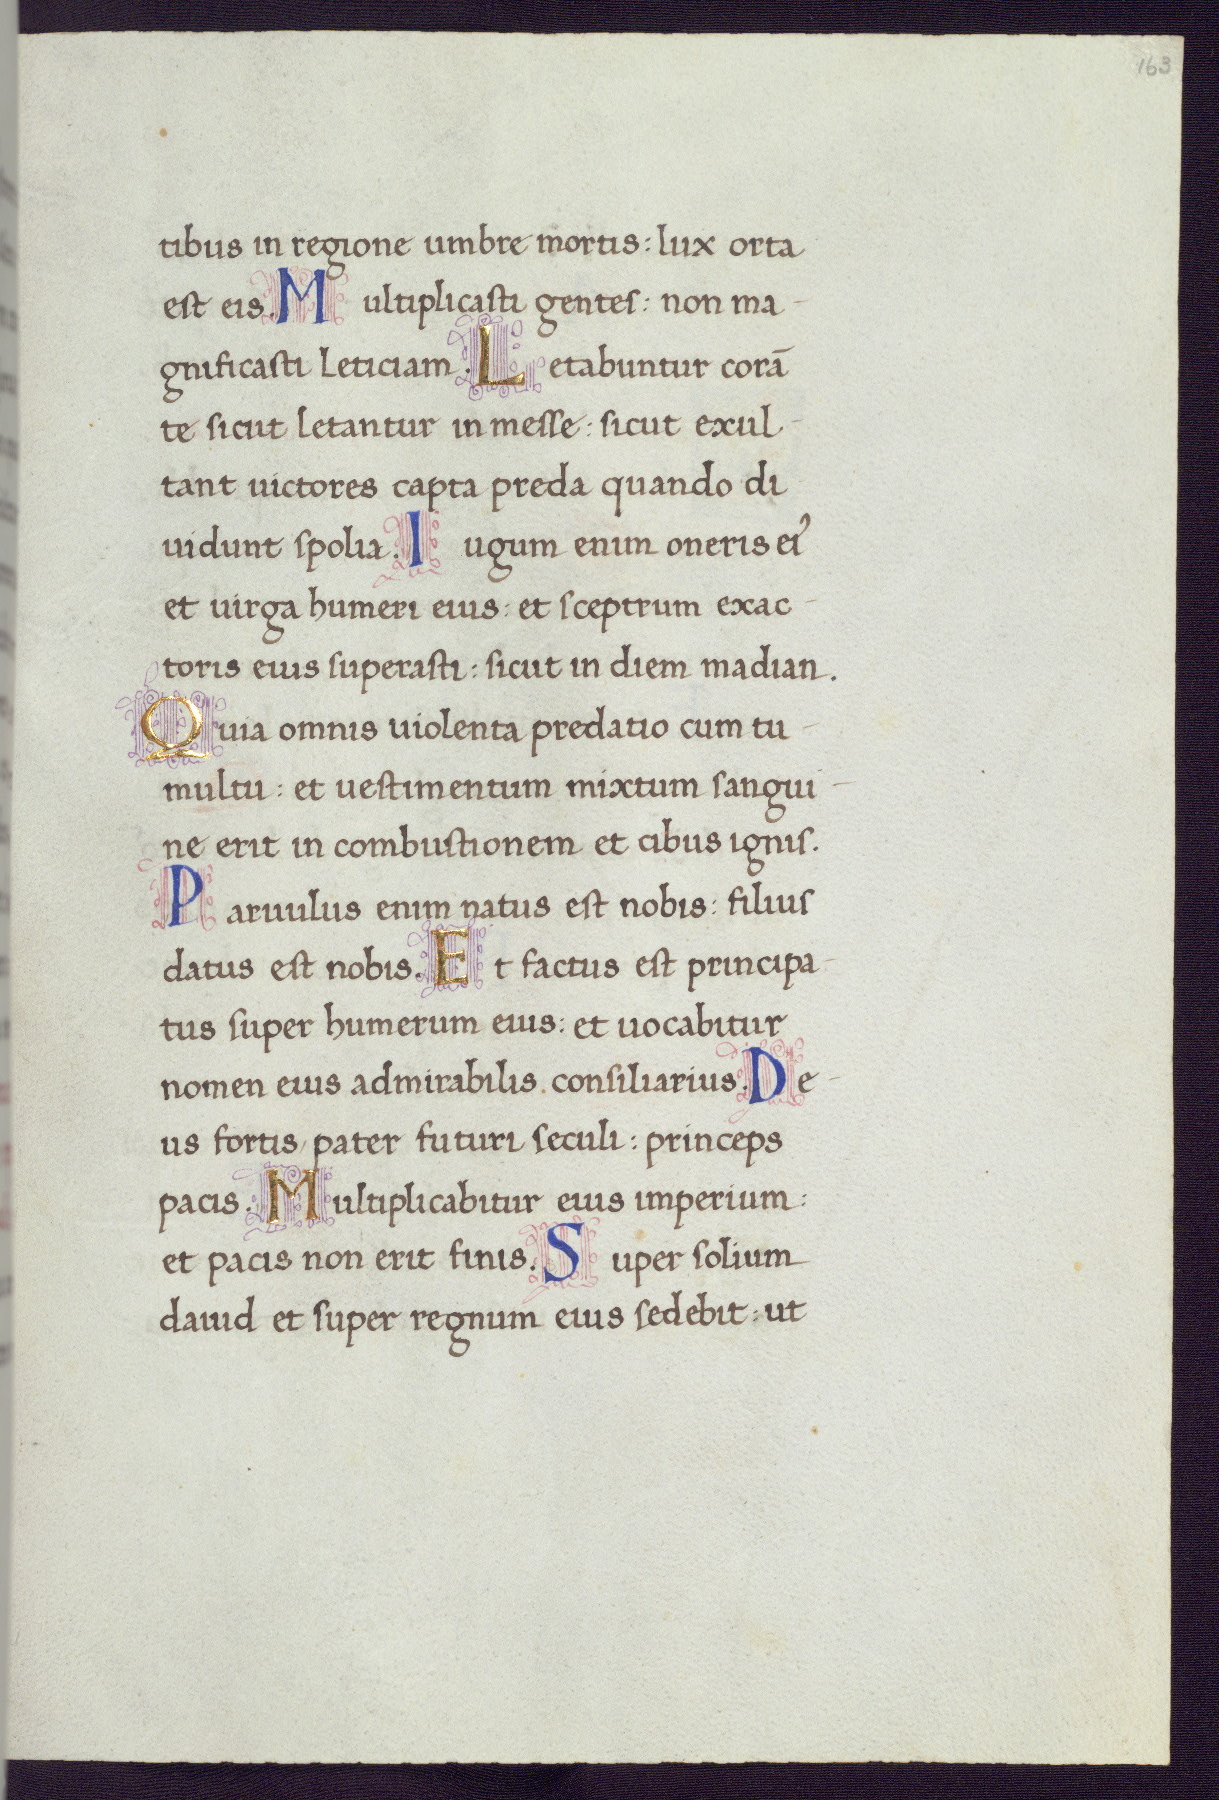 163
tibus in regione umbre mortis: lux orta
est eis. Multiplicasti gentes: non ma-
gnificasti leticiam. Letabuntur corā
te sicut letantur in messe: sicut exul-
tant uictores capta preda quando di
uidunt spolia. Iugum enim oneris eiꝰ
et uirga humeri eius: et sceptrum exac-
toris eius superasti: sicut in diem madian.
Quia omnis uiolenta predatio cum tu-
multu: et uestimentum mixtum sangui-
ne erit in combustionem et cibus ignis.
Paruulus enim natus est nobis: filius
datus est nobis. Et factus est principa-
tus super humerum eius: et uocabitur
nomen eius admirabilis. consiliarius. De-
us fortis, pater futuri seculi: princeps
pacis. Multiplicabitur eius imperium:
et pacis non erit finis. Super solium
dauid et super regnum eius sedebit: ut